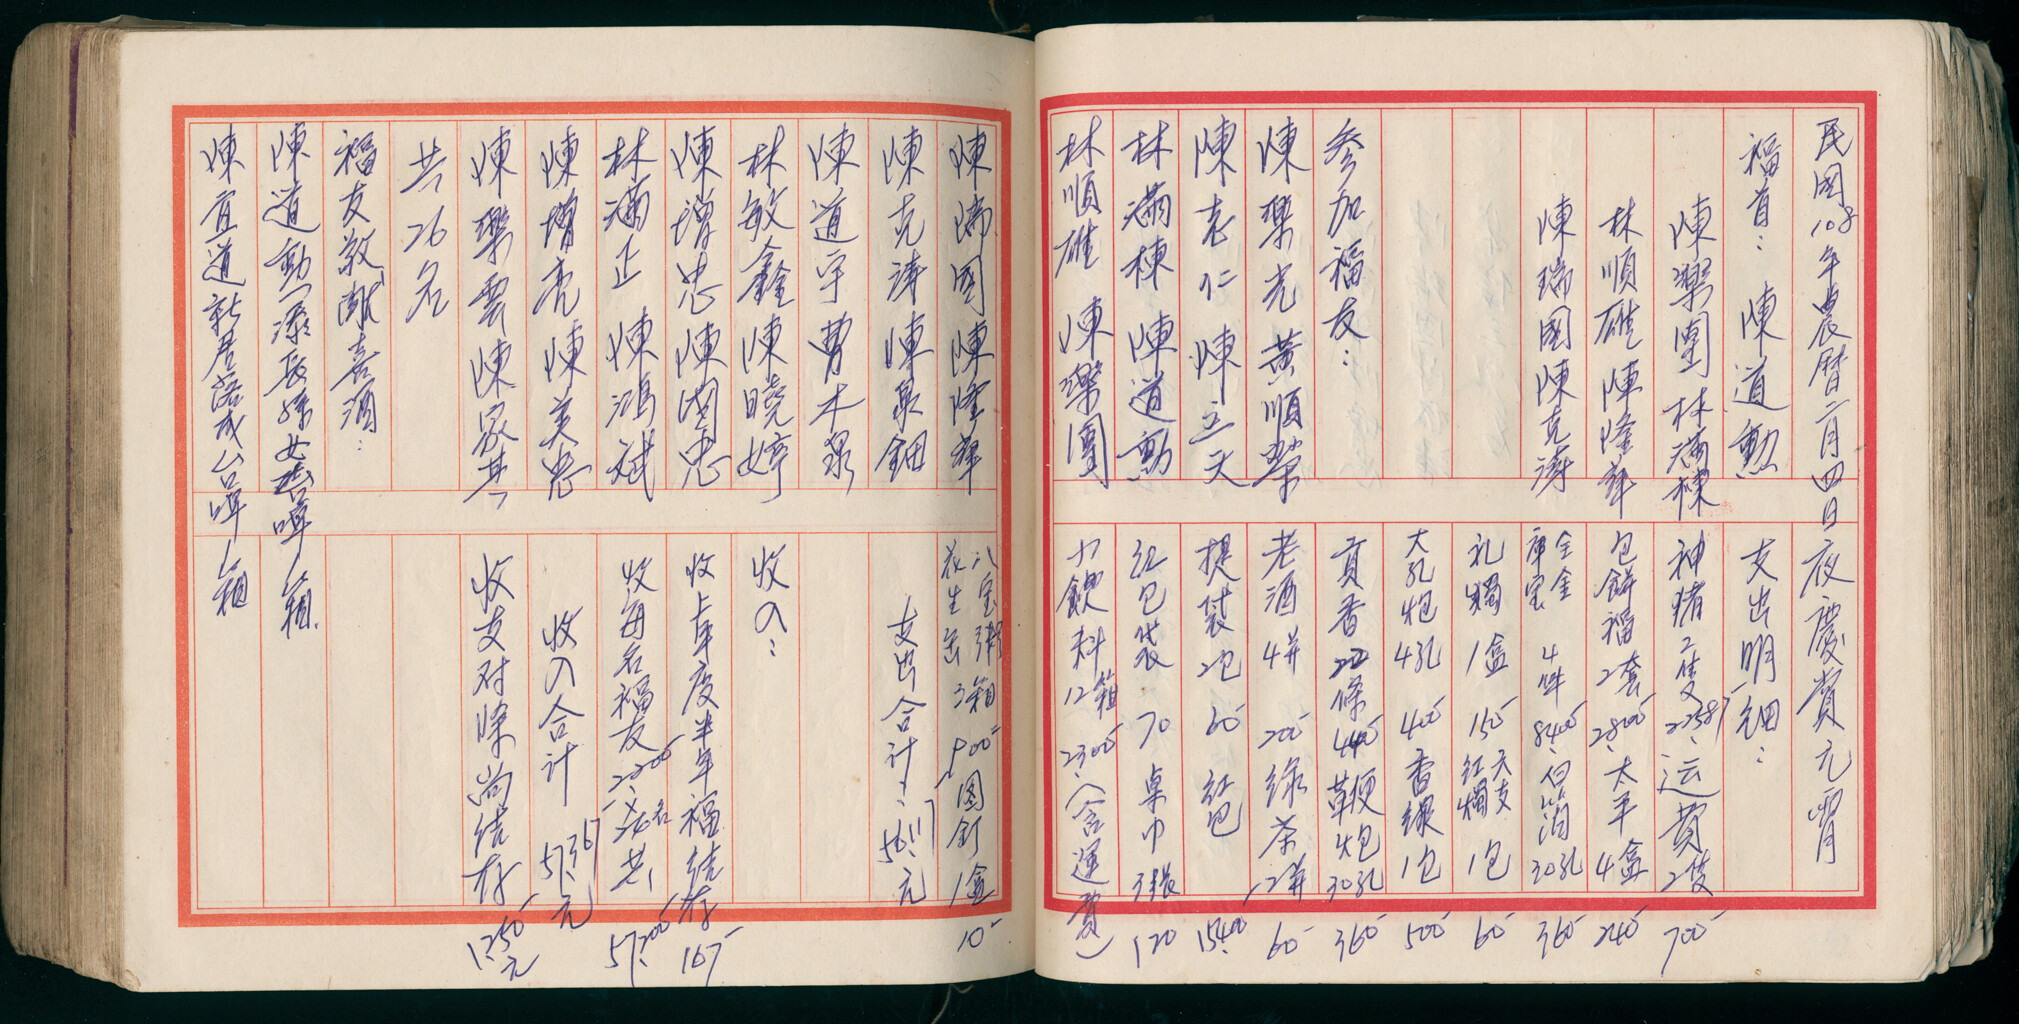 民國108年農曆二月四日夜慶賞元宵
福首：陳道勳
陳樂團 林滿棟
林順雄 陳隆輝
陳瑞國 陳克濤
參加福友：
陳樂光 黃順榮
陳志仁 陳立天
林滿棟 陳道勳
林順雄 陳樂團
支出明細：
神豬2隻 22587 运費2隻 700
包餅福2套 2800 太平4盒 240
全金 庫宝 4件 8400 30孔 360
礼燭1盒 150 天支紅燭1包 60
大孔炮4孔 400 香線1包 500
貢香 22條 440 鞭炮30孔 360
老酒4并 200 綠茶2并 60
提袋2包 60 紅包 15400
紅包袋 70 桌巾3張 120
飲料12箱 2300（含運費）
陳瑞國 陳隆輝
陳克濤 陳泉鈿
陳道宇 曹木泉
林敏鑫 陳曉婷
陳增忠 陳國忠
林滿正 陳鴻斌
陳增亮 陳美忠
陳樂雲 陳家其
共26名
福友敬献喜酒：
陳道勳添長孫女 台啤1箱
陳宜道新居落成台啤1箱
八宝粥 花生 3箱 900 图釘1盒 10
支出合计 56117元
收入：
收上年度半年福结存 167
收每名福友2200 26名共 57200
收入合计 57367元
收支对除尚结存 1250元